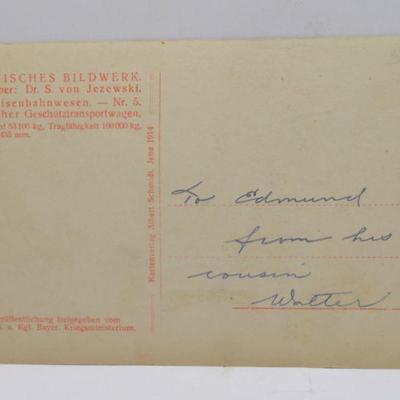 ISCHES BILDWERK.
ber: Dr. S. von Jezewski.
isenbahnwesen. — Nr. 5.
cher Geschütztransportwagen,
ht 53100 kg, Tragfähigkeit 100000 kg,
435 mm.
röffentlichung freigegeben vom
l. u. Kgl. Bayer. Kriegsministerium.
Kartenverlag Albert Schmidt, Jena 1914
To Edmund
from his
cousin
Walter